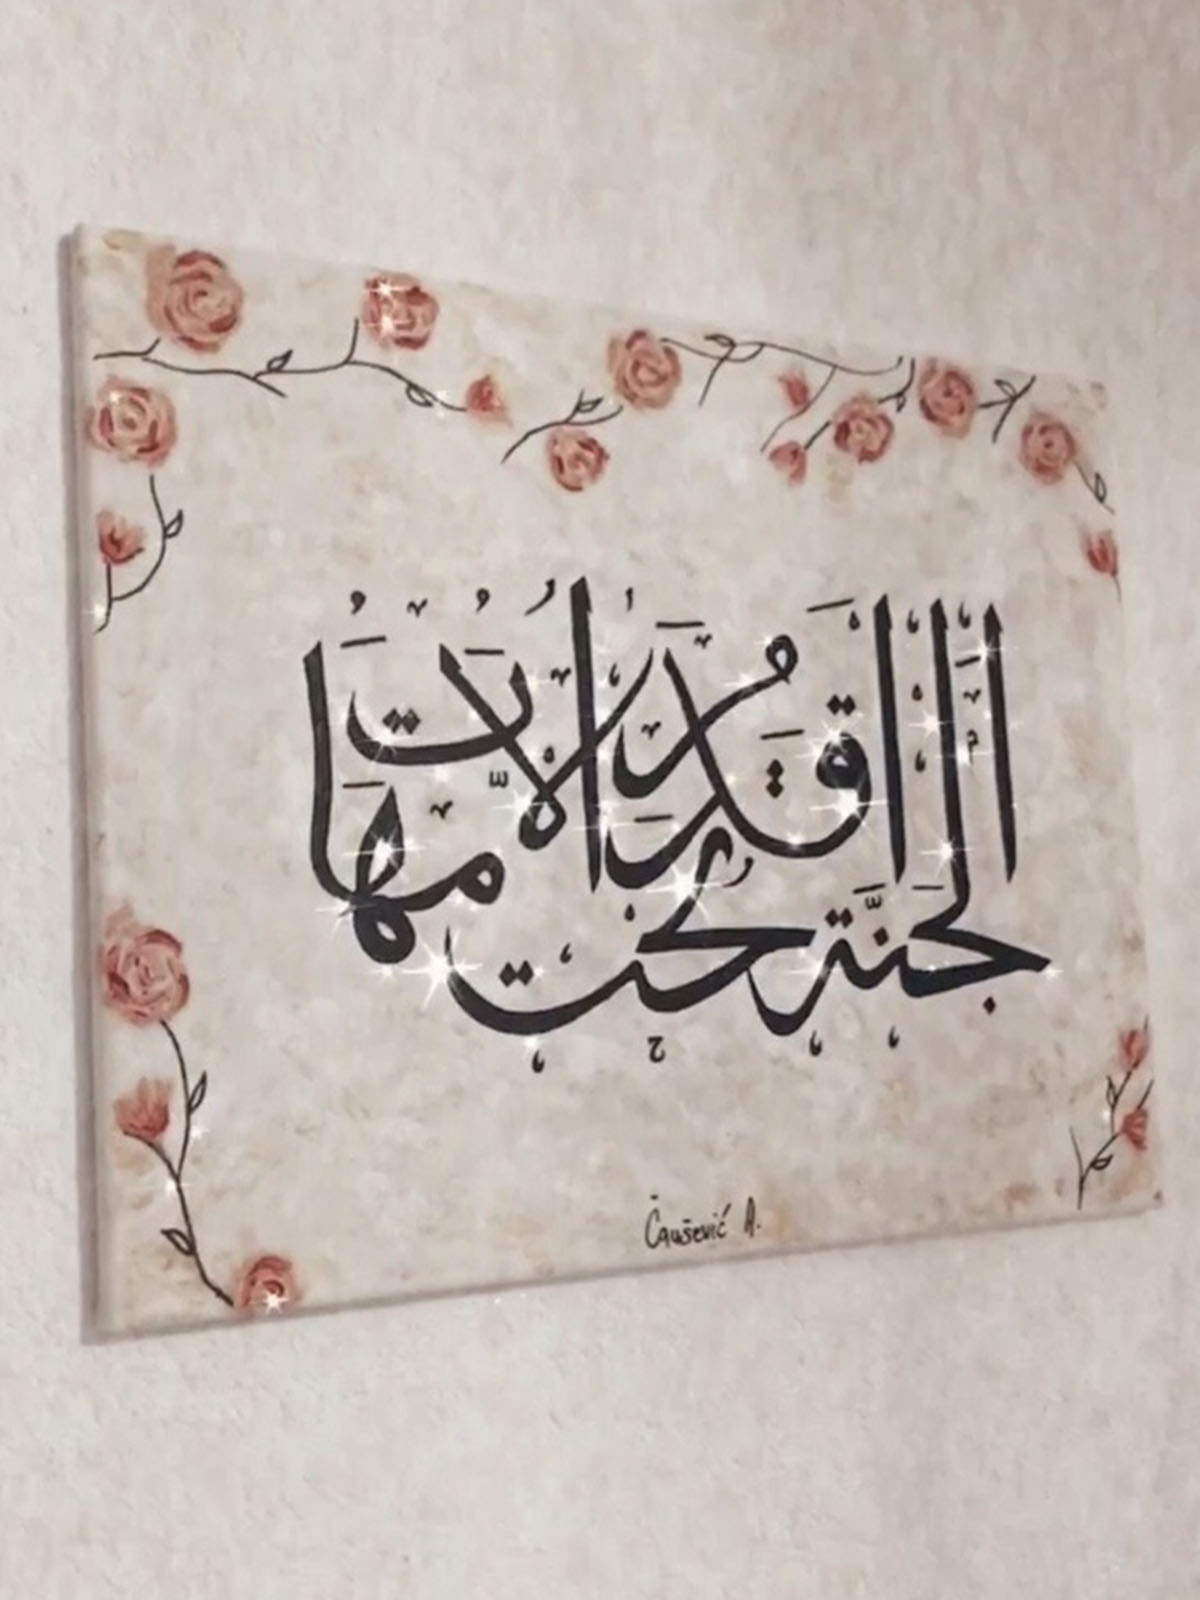 الجنة تحت
اقدام الامهات
Čaušević A.